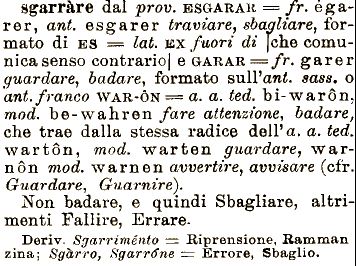 sgarràre dal prov. ESGARAR = fr. éga-
rer, ant. esgarer traviare, sbagliare, for-
mato di ES = lat. EX fuori di |che comu-
nica senso contrario| e GARAR = fr. garer
guardare, badare, formato sull'ant. sass. o
ant. franco WAR-ÔN = a. a. ted. bi-warôn,
mod. be-wahren fare attenzione, badare,
che trae dalla stessa radice dell'a. a. ted.
wartôn, mod. warten guardare, war-
nôn mod. warnen avvertire, avvisare (cfr.
Guardare, Guarnire).
Non badare, e quindi Sbagliare, altri-
menti Fallire, Errare.
Deriv. Sgarriménto = Riprensione, Ramman
zina; Sgàrro, Sgarróne = Errore, Sbaglio.